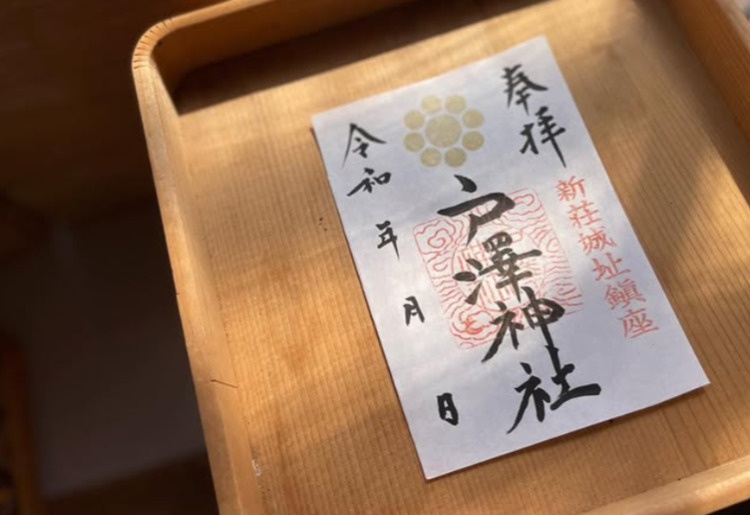 奉拝
新荘城址鎮座
戸澤神社
令和 年 月 日